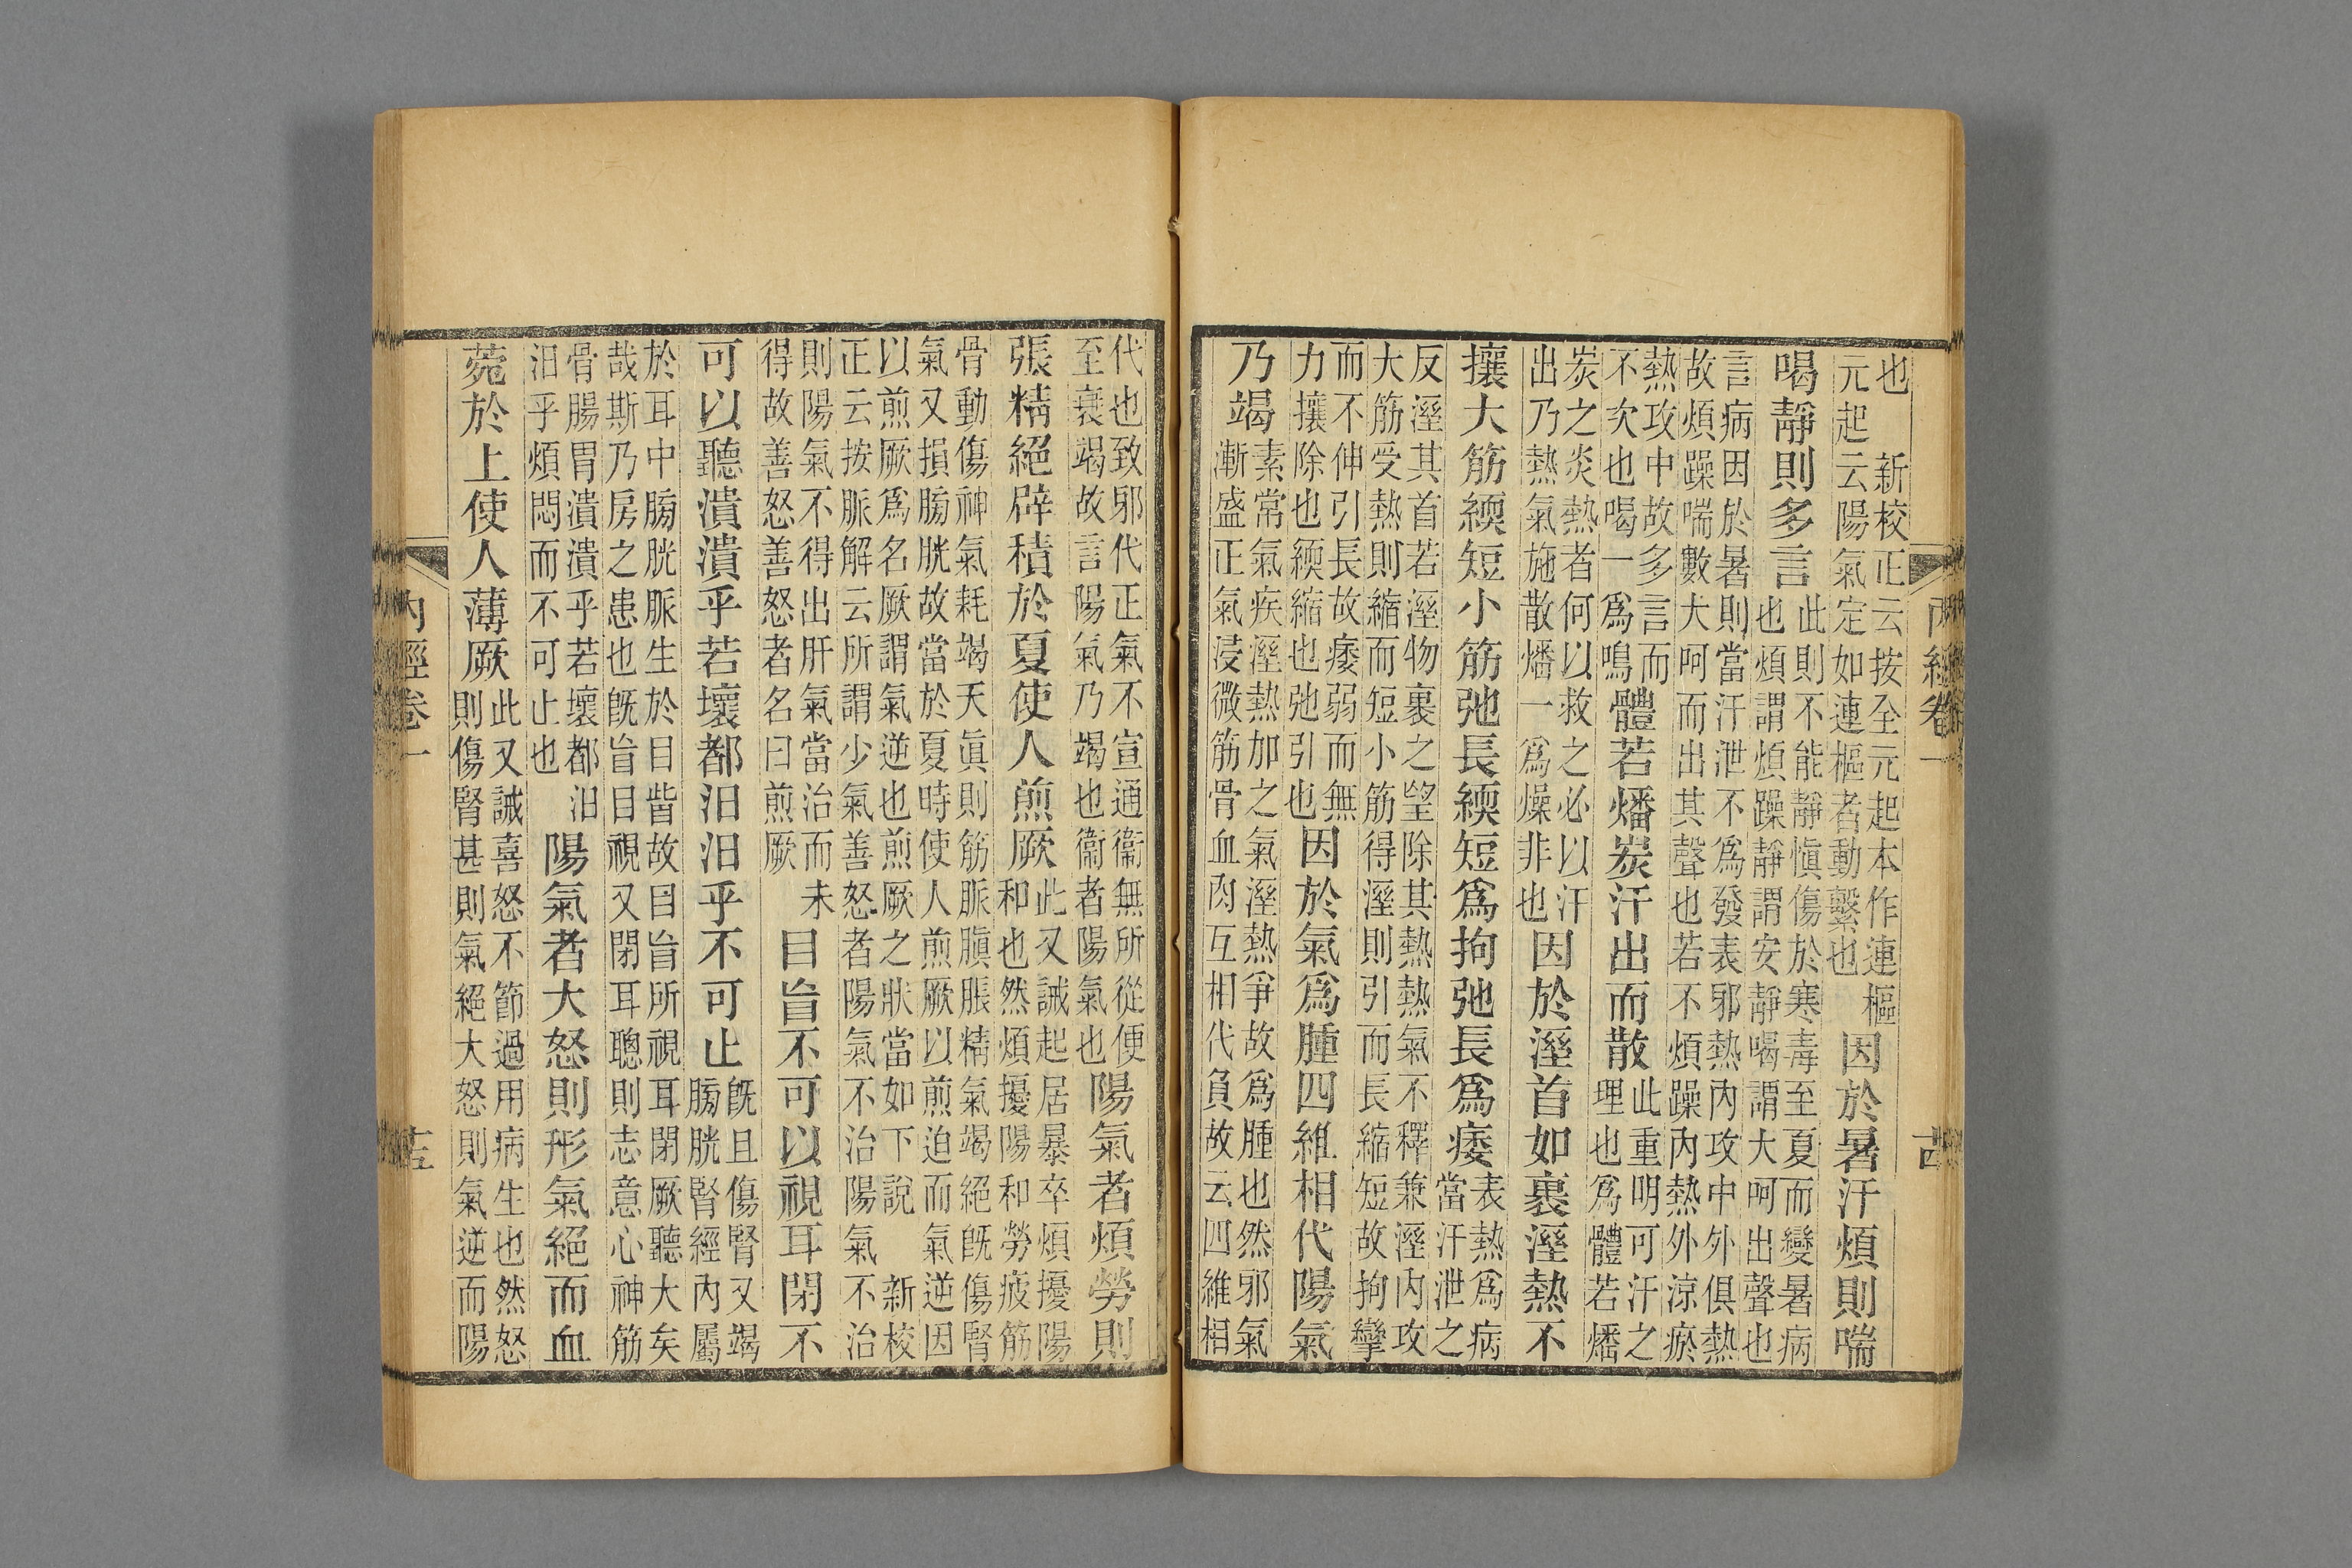 也　新校正云按至元起本作連樞
元起云陽氣定如連樞者動繫也
因於暑汗煩則喘
喝靜則多言
此則不能靜慎傷於寒毒至夏而變暑病
也煩謂煩躁靜謂安靜喝謂大呵出聲也
言病因於暑則當汗泄不爲發表邪熱內攻中外俱熱
故煩躁喘數大呵而出其聲也若不煩躁內熱外涼瘀
熱攻中故多言而
不次也喝一爲鳴
體若燔炭汗出而散
此重明可汗之
理也爲體若燔
炭之炎熱者何以救之必以汗
出乃熱氣施散燔一爲燥非也
因於溼首如裹溼熱不
攘大筋緛短小筋弛長緛短爲拘弛長爲痿
表熱爲病
當汗泄之
反溼其首若溼物裹之望除其熱熱氣不釋兼溼內攻
大筋受熱則縮而短小筋得溼則引而長縮短故拘攣
而不伸引長故痿弱而無
力攘除也緛縮也弛引也
因於氣爲腫四維相代陽氣
乃竭
素常氣疾溼熱加之氣溼熱爭故爲腫也然邪氣
漸盛正氣浸微筋骨血肉互相代負故云四維相
代也致邪代正氣不宣通衞無所從便
至衰竭故言陽氣乃竭也衞者陽氣也
陽氣者煩勞則
張精絕辟積於夏使人煎厥
此又誡起居暴卒煩擾陽
和也然煩擾陽和勞疲筋
骨動傷神氣耗竭天眞則筋脈䐜脹精氣竭絕旣傷腎
氣又損膀胱故當於夏時使人煎厥以煎迫而氣逆因
以煎厥爲名厥謂氣逆也煎厥之狀當如下說　新校
正云按脈解云所謂少氣善怒者陽氣不治陽氣不治
則陽氣不得出肝氣當治而未
得故善怒善怒者名曰煎厥
目盲不可以視耳閉不
可以聽潰潰乎若壞都汨汨乎不可止
旣且傷腎又竭
膀胱腎經內屬
於耳中膀胱脈生於目眥故目盲所視耳閉厥聽大矣
哉斯乃房之患也旣盲目視又閉耳聰則志意心神筋
骨腸胃潰潰乎若壞都汨
汨乎煩悶而不可止也
陽氣者大怒則形氣絕而血
菀於上使人薄厥
此又誡喜怒不節過用病生也然怒
則傷腎甚則氣絕大怒則氣逆而陽
內經卷一